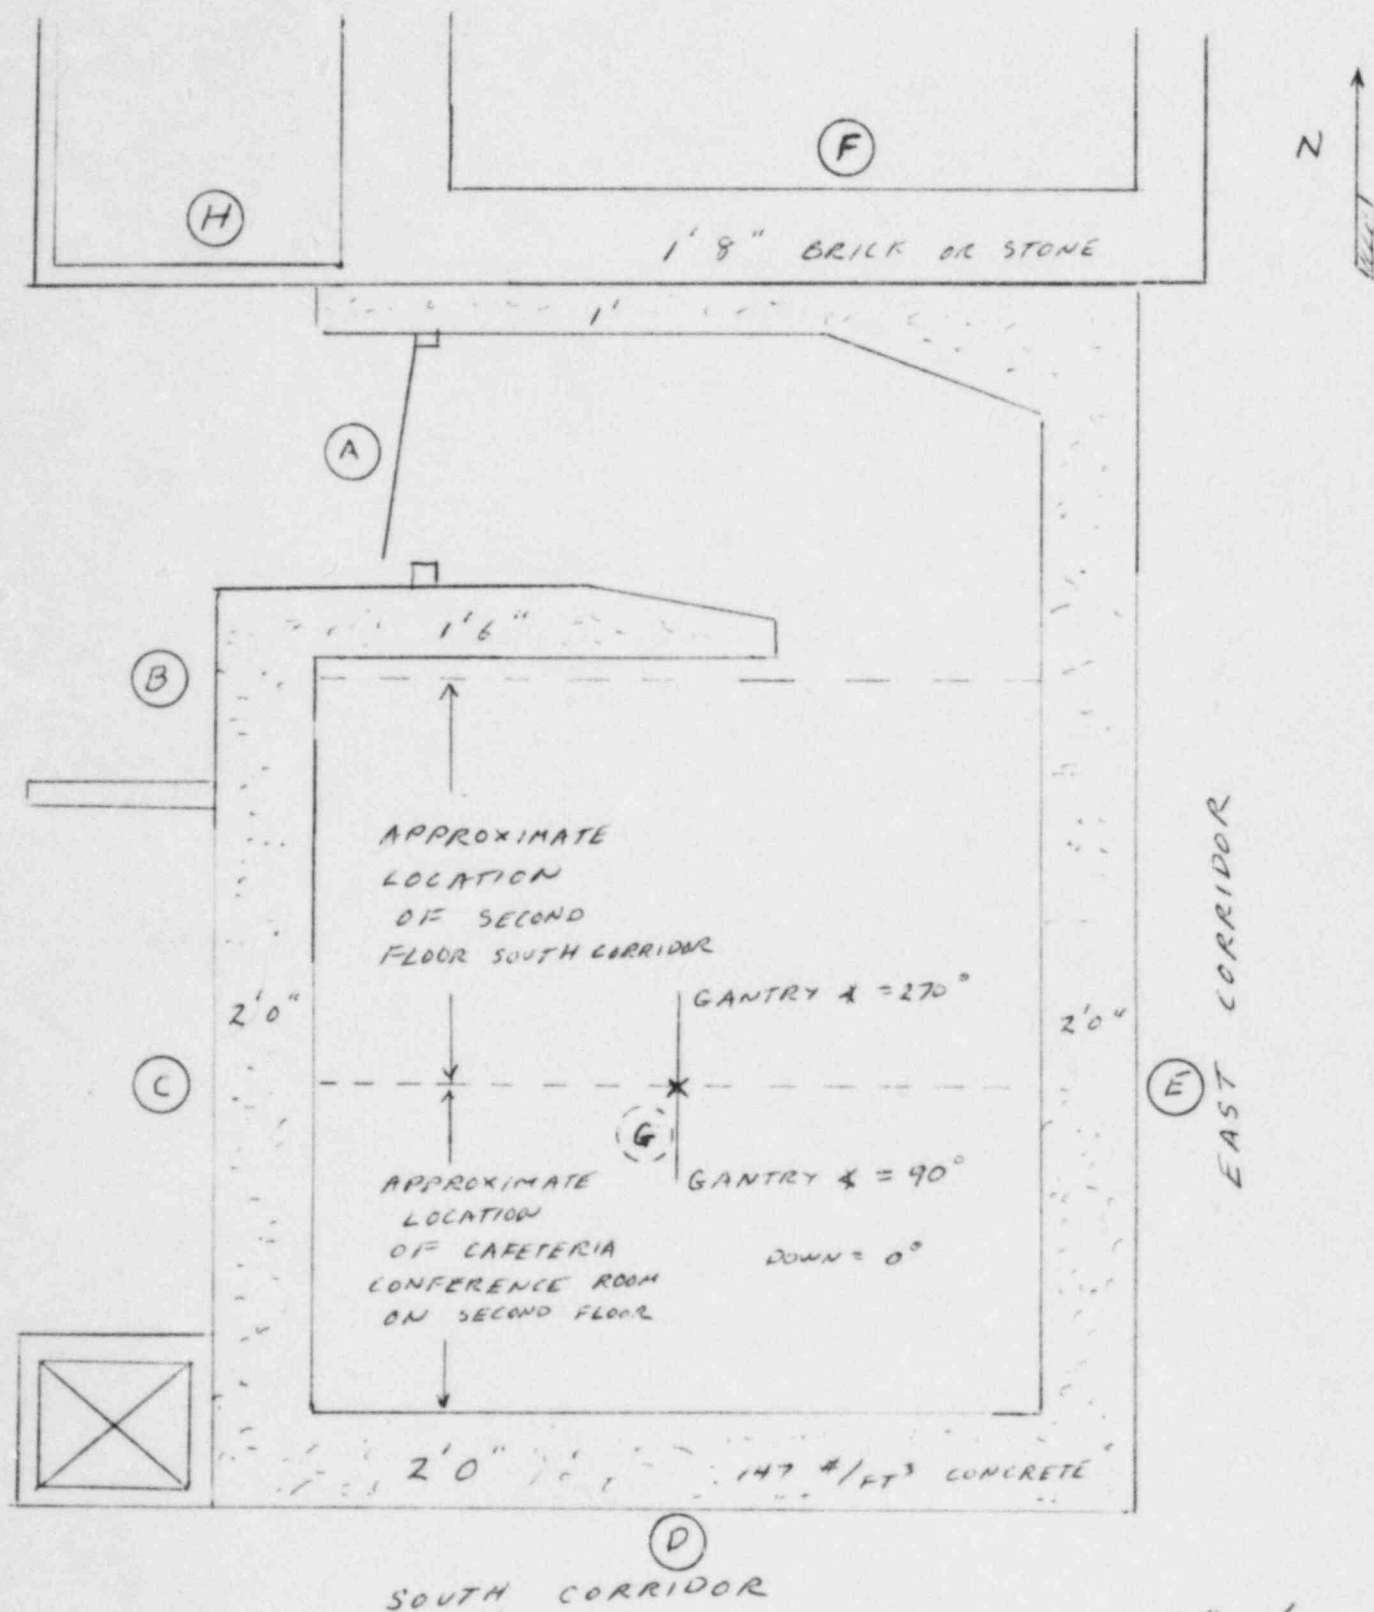 F
N
H
1' 8" BRICK OR STONE
1'
A
1' 6"
B
APPROXIMATE
LOCATION
OF SECOND
FLOOR SOUTH CORRIDOR
GANTRY ∡ = 270°
2' 0"
2' 0"
C
E
EAST CORRIDOR
G
APPROXIMATE
LOCATION
OF CAFETERIA
CONFERENCE ROOM
ON SECOND FLOOR
GANTRY ∡ = 90°
DOWN = 0°
2' 0"
147 #/FT³ CONCRETE
D
SOUTH CORRIDOR